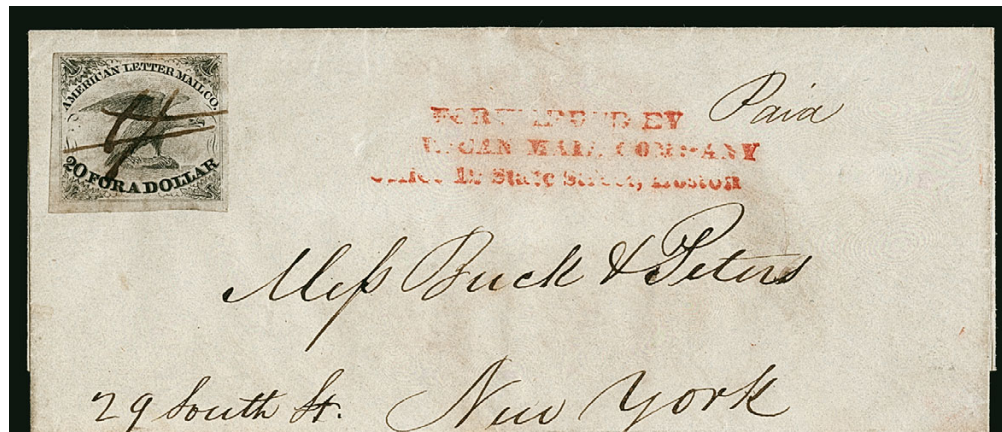 AMERICAN LETTER MAIL CO.
20 FOR A DOLLAR
FORWARDED BY
MAIL COMPANY
Office State Street, Boston
Paid
Meſs Buck & Peters
29 South St. New York